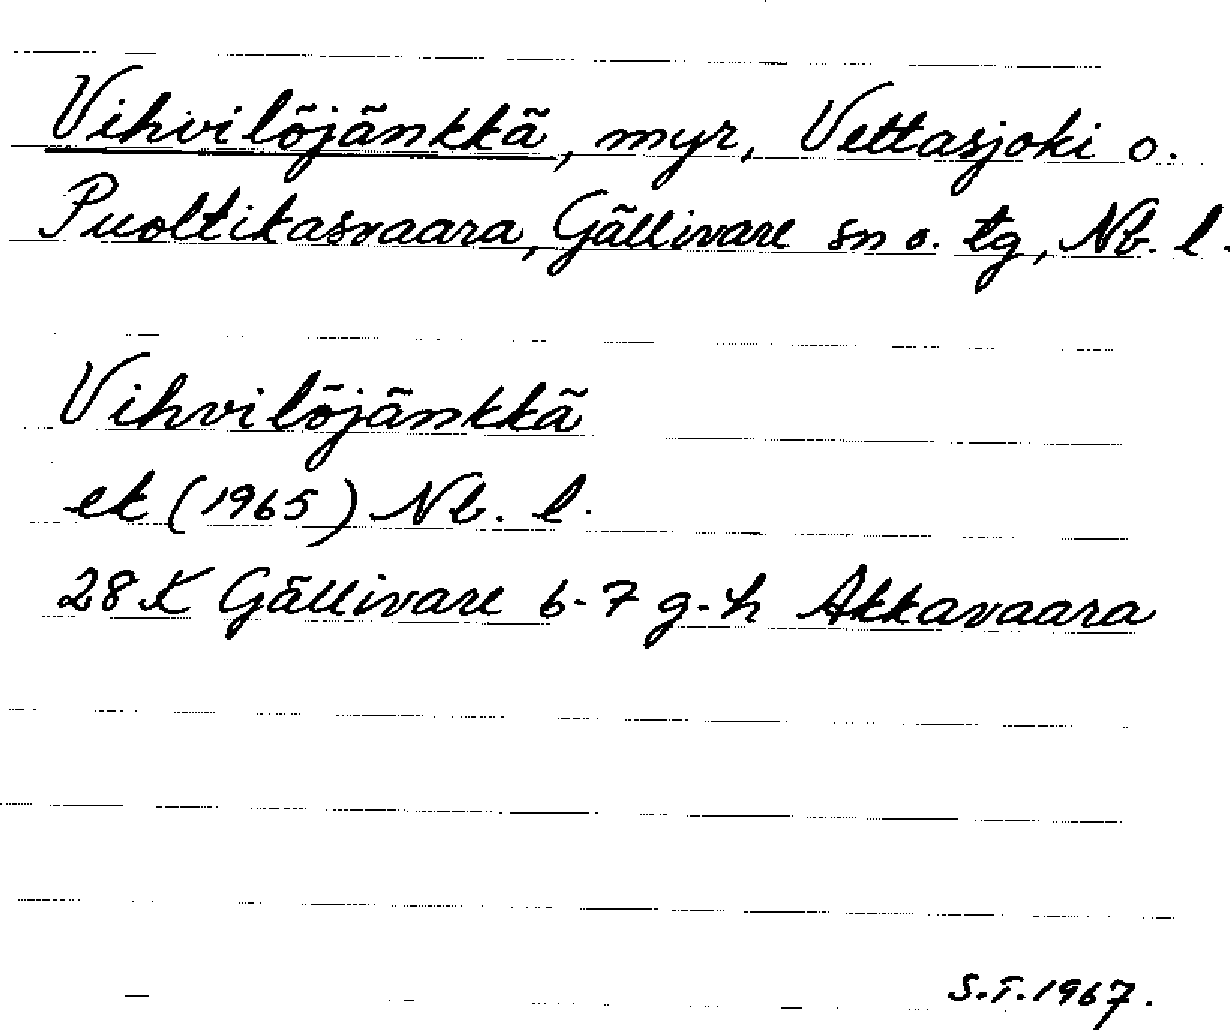 Vihvilöjänkkä, myr, Vettasjoki o.
Puoltikasvaara, Gällivare sn o. tg, Nb. l.
Vihvilöjänkkä
ek (1965) Nb. l.
28 K Gällivare 6-7 g-h Akkavaara
S.T. 1967.